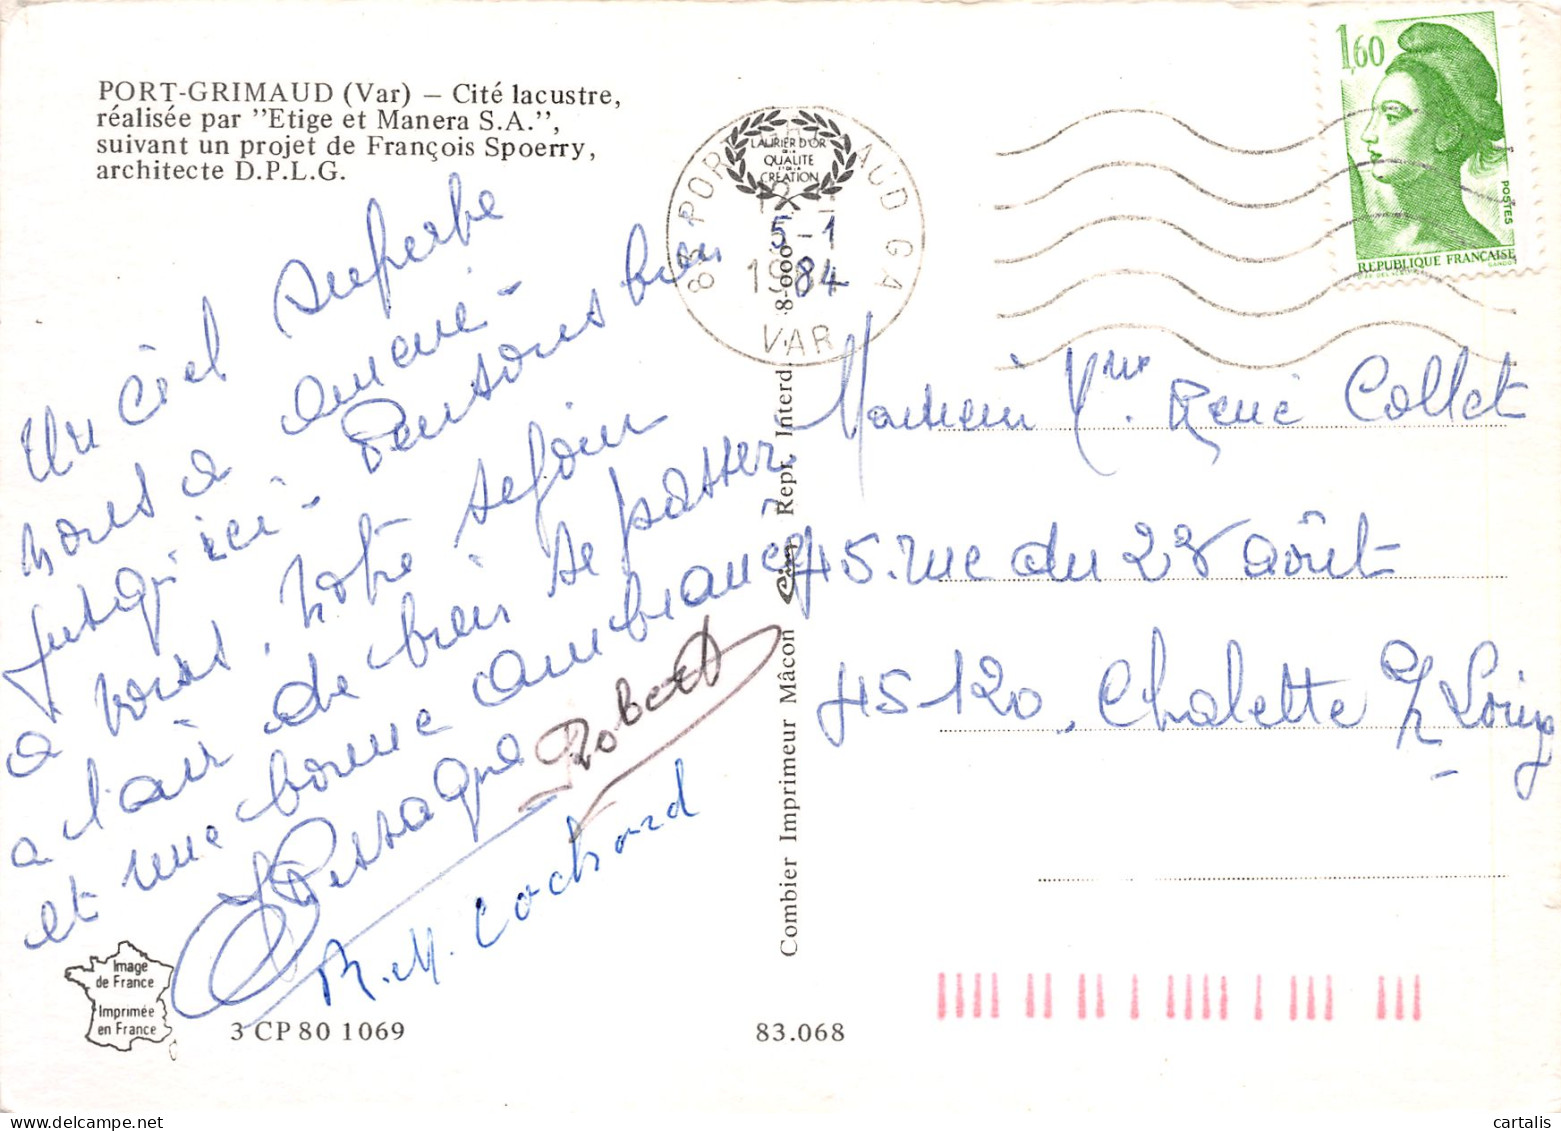 PORT-GRIMAUD (Var) — Cité lacustre,
réalisée par "Etige et Manera S.A.",
suivant un projet de François Spoerry,
architecte D.P.L.G.
Un ciel superbe
nous a amené
jusqu'ici - Pensons bien
à vous, notre séjour
a l'air de bien se passer
et une bonne ambiance
Robert
R. M. Cochard
Image
de France
Imprimée
en France
3 CP 80 1069
83.068
Combier Imprimeur Mâcon
Cim
Repr. Interd.
8-000
LAURIER D'OR
DE LA
QUALITE
CREATION
83 PORT
AUD GA
5-1
1984
VAR
1,60
POSTES
REPUBLIQUE FRANÇAISE
GANDON
Monsieur Mme René Collet
45. rue du 28 août
45120. Chalette s/ Loing